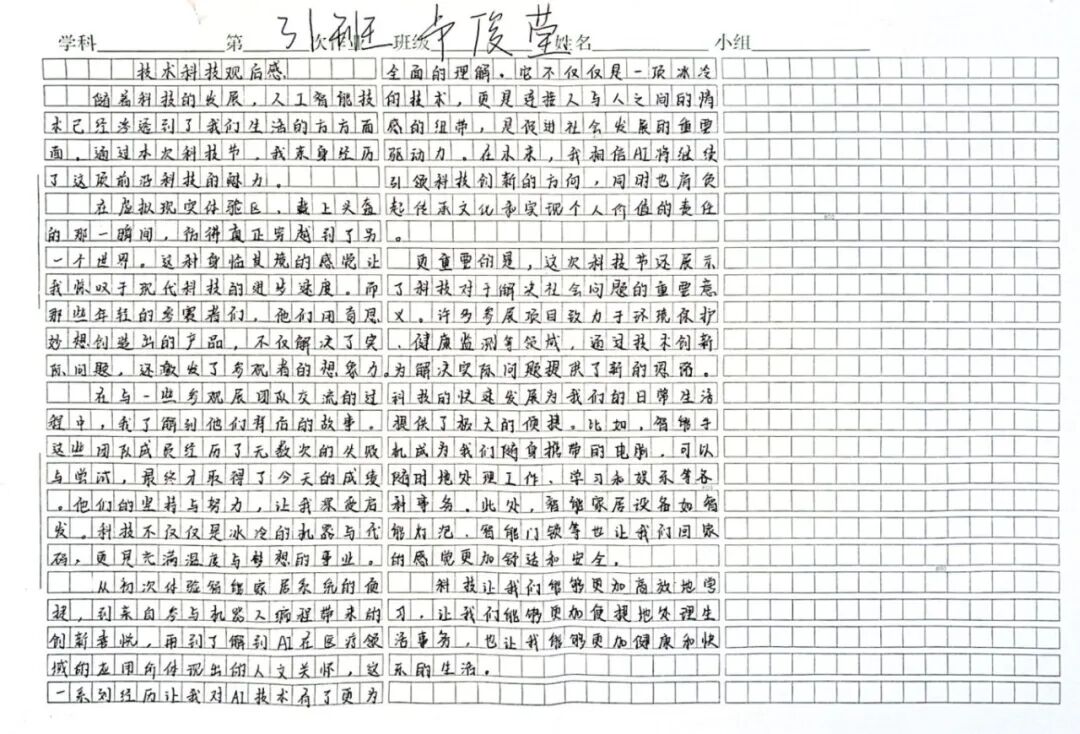 学科 第 次作业 班级 姓名 小组
引班 俊莹
技术科技观后感
随着科技的发展，人工智能技
术已经渗透到了我们生活的方方面
面。通过本次科技节，我亲身经历
了这项前沿科技的魅力。
在虚拟现实体验区，戴上头盔
的那一瞬间，彷彿真正穷越到了另
一个世界。这种身临其境的感觉让
我惊叹于现代科技的进步速度。而
那些年轻的参赛者们，他们用奇思
妙想创造出的产品，不仅解决了实
际问题，还激发了参观者的想象力。
在与一些参观展团队交流的过
程中，我了解到他们背后的故事。
这些团队成员经历了无数次的失败
与尝试，最终才取得了今天的成绩
。他们的坚持与努力，让我深受启
发。科技不仅仅是冰冷的机器与代
码，更是充满温度与梦想的事业。
从初次体验智能家居系统的便
捷，到亲自参与机器人编程带来的
创新喜悦，再到了解到AI在医疗领
域的应用所体现出的人文关怀，这
一系列经历让我对AI技术有了更为
全面的理解。它不仅仅是一项冰冷
的技术，更是连接人与人之间的情
感的纽带，是促进社会发展的重要
驱动力。在未来，我相信AI将继续
引领科技创新的方向，同时也肩负
起传承文化和实现个人价值的责任
。
更重要的是，这次科技节还展示
了科技对于解决社会问题的重要意
义。许多参展项目致力于环境保护
、健康监测等领域，通过技术创新
为解决实际问题提供了新的思路。
科技的快速发展为我们的日常生活
提供了极大的便捷。比如，智能手
机成为我们随身携带的电脑，可以
随时地处理工作、学习和娱乐等各
种事务。此处，智能家居设备如智
能灯泡、智能门锁等也让我们回家
的感觉更加舒适和安全。
科技让我们能够更加高效地学
习，让我们能够更加便捷地处理生
活事务，也让我能够更加健康和快
乐的生活。